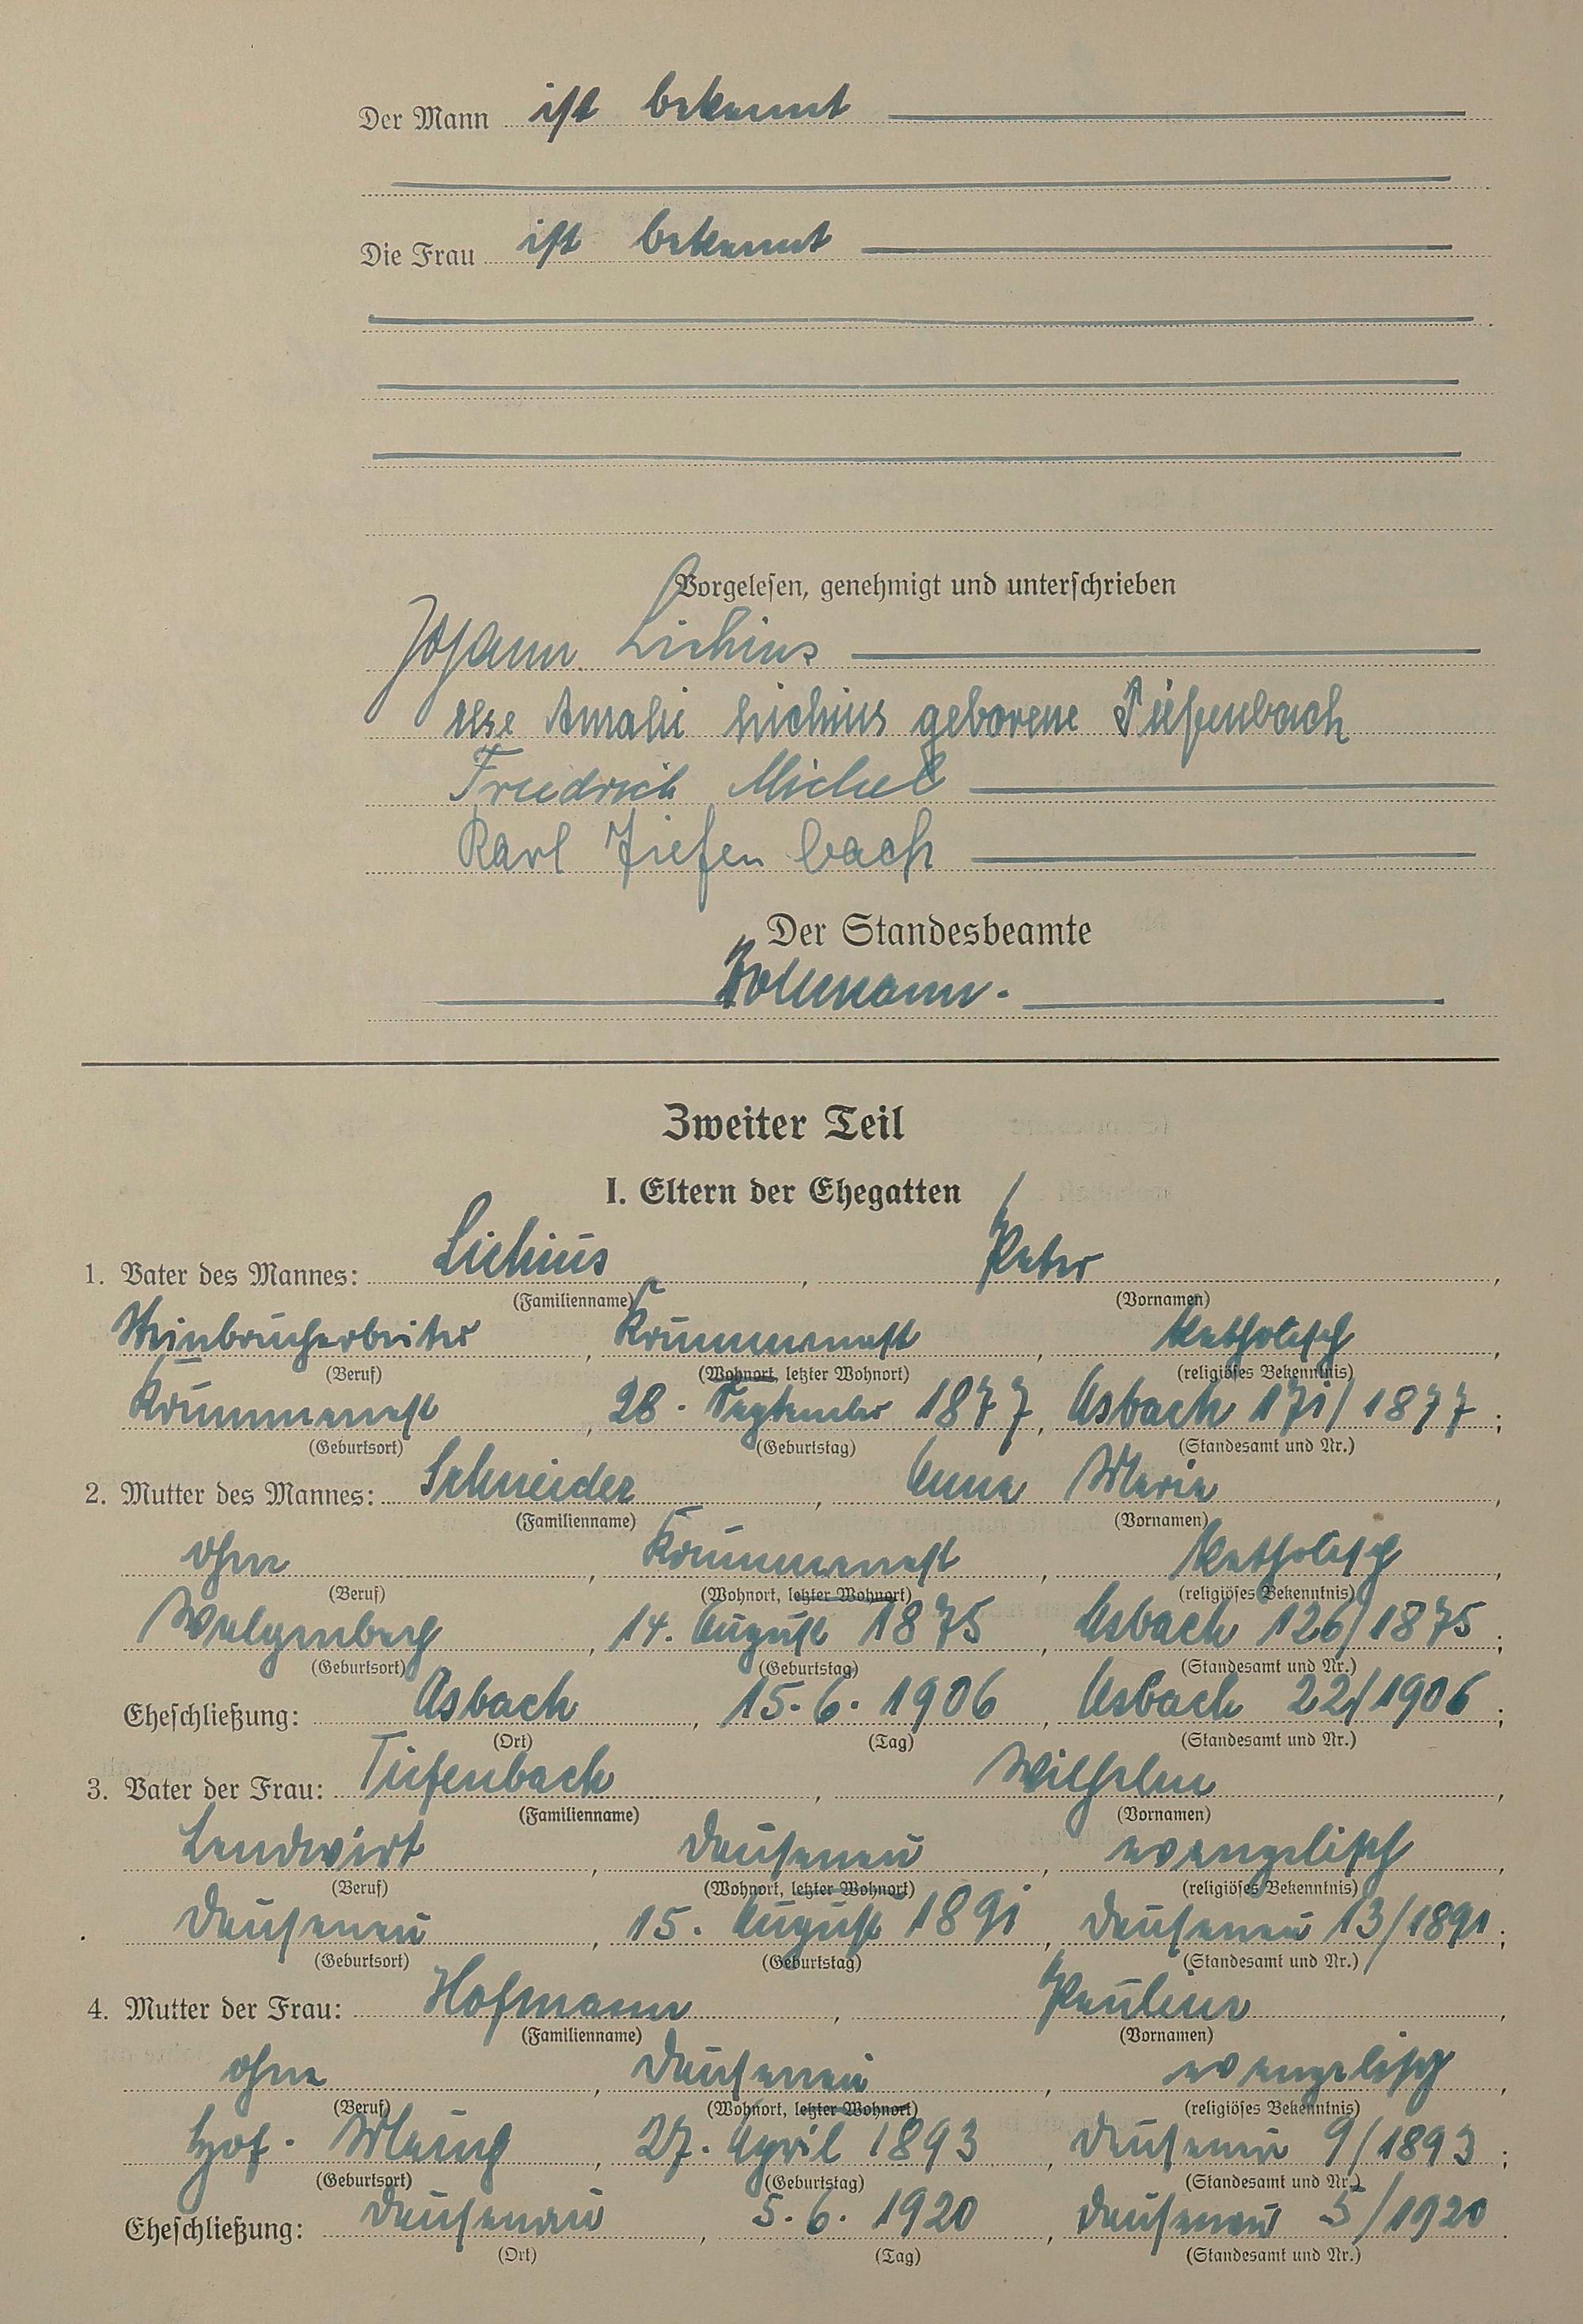 Der Mann ist bekannt
Die Frau ist bekannt
Vorgelesen, genehmigt und unterschrieben
Johann Lichius
Else Amalie Lichius geborene Tiefenbach
Friedrich Michel
Karl Tiefenbach
Der Standesbeamte
Zweiter Teil
I. Eltern der Ehegatten
1. Vater des Mannes: Lichius, Peter,
(Familienname) (Vornamen)
Steinbrucharbeiter, Krummenast, katholisch,
(Beruf) (Wohnort, letzter Wohnort) (religiöses Bekenntnis)
Krummenast, 28. September 1877, Asbach 171/1877;
(Geburtsort) (Geburtstag) (Standesamt und Nr.)
2. Mutter des Mannes: Schneider, Anna Maria,
(Familienname) (Vornamen)
ohne, Krummenast, katholisch,
(Beruf) (Wohnort, letzter Wohnort) (religiöses Bekenntnis)
Walgenbach, 14. August 1875, Asbach 126/1875;
(Geburtsort) (Geburtstag) (Standesamt und Nr.)
Eheschließung: Asbach, 15.6.1906, Asbach 22/1906;
(Ort) (Tag) (Standesamt und Nr.)
3. Vater der Frau: Tiefenbach, Wilhelm,
(Familienname) (Vornamen)
Landwirt, Dausenau, evangelisch,
(Beruf) (Wohnort, letzter Wohnort) (religiöses Bekenntnis)
Dausenau, 15. August 1891, Dausenau 13/1891;
(Geburtsort) (Geburtstag) (Standesamt und Nr.)
4. Mutter der Frau: Hofmann, Pauline,
(Familienname) (Vornamen)
ohne, Dausenau, evangelisch,
(Beruf) (Wohnort, letzter Wohnort) (religiöses Bekenntnis)
Hof. Mauch, 27. April 1893, Dausenau 9/1893;
(Geburtsort) (Geburtstag) (Standesamt und Nr.)
Eheschließung: Dausenau, 5.6.1920, Dausenau 5/1920.
(Ort) (Tag) (Standesamt und Nr.)